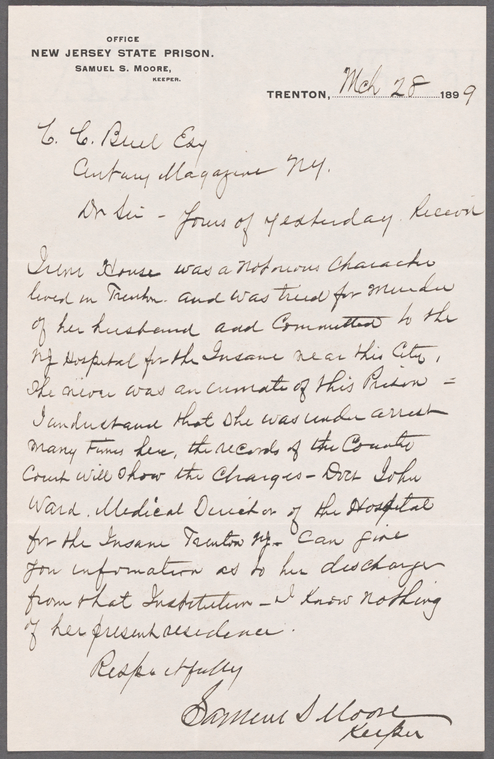 OFFICE
NEW JERSEY STATE PRISON.
SAMUEL S. MOORE,
KEEPER.
TRENTON, Mch 28 1899
C. C. Buel Esq
Century Magazine NY.
Dr Sir - Yours of yesterday Receiv
Irene House was a Notorious Character
lived in Trenton. and was tried for Murder
of her husband and Committed to the
NJ Hospital for the Insane near this City,
She never was an inmate of this Prison =
I understand that She was under arrest
many times here, the records of the County
Court will Show the Charges - Doct John
Ward. Medical Director of the Hospital
for the Insane Trenton NJ - Can give
you information as to her discharge
from that Institution - I Know nothing
of her present residence.
Respectfully
Samuel S Moore
Keeper